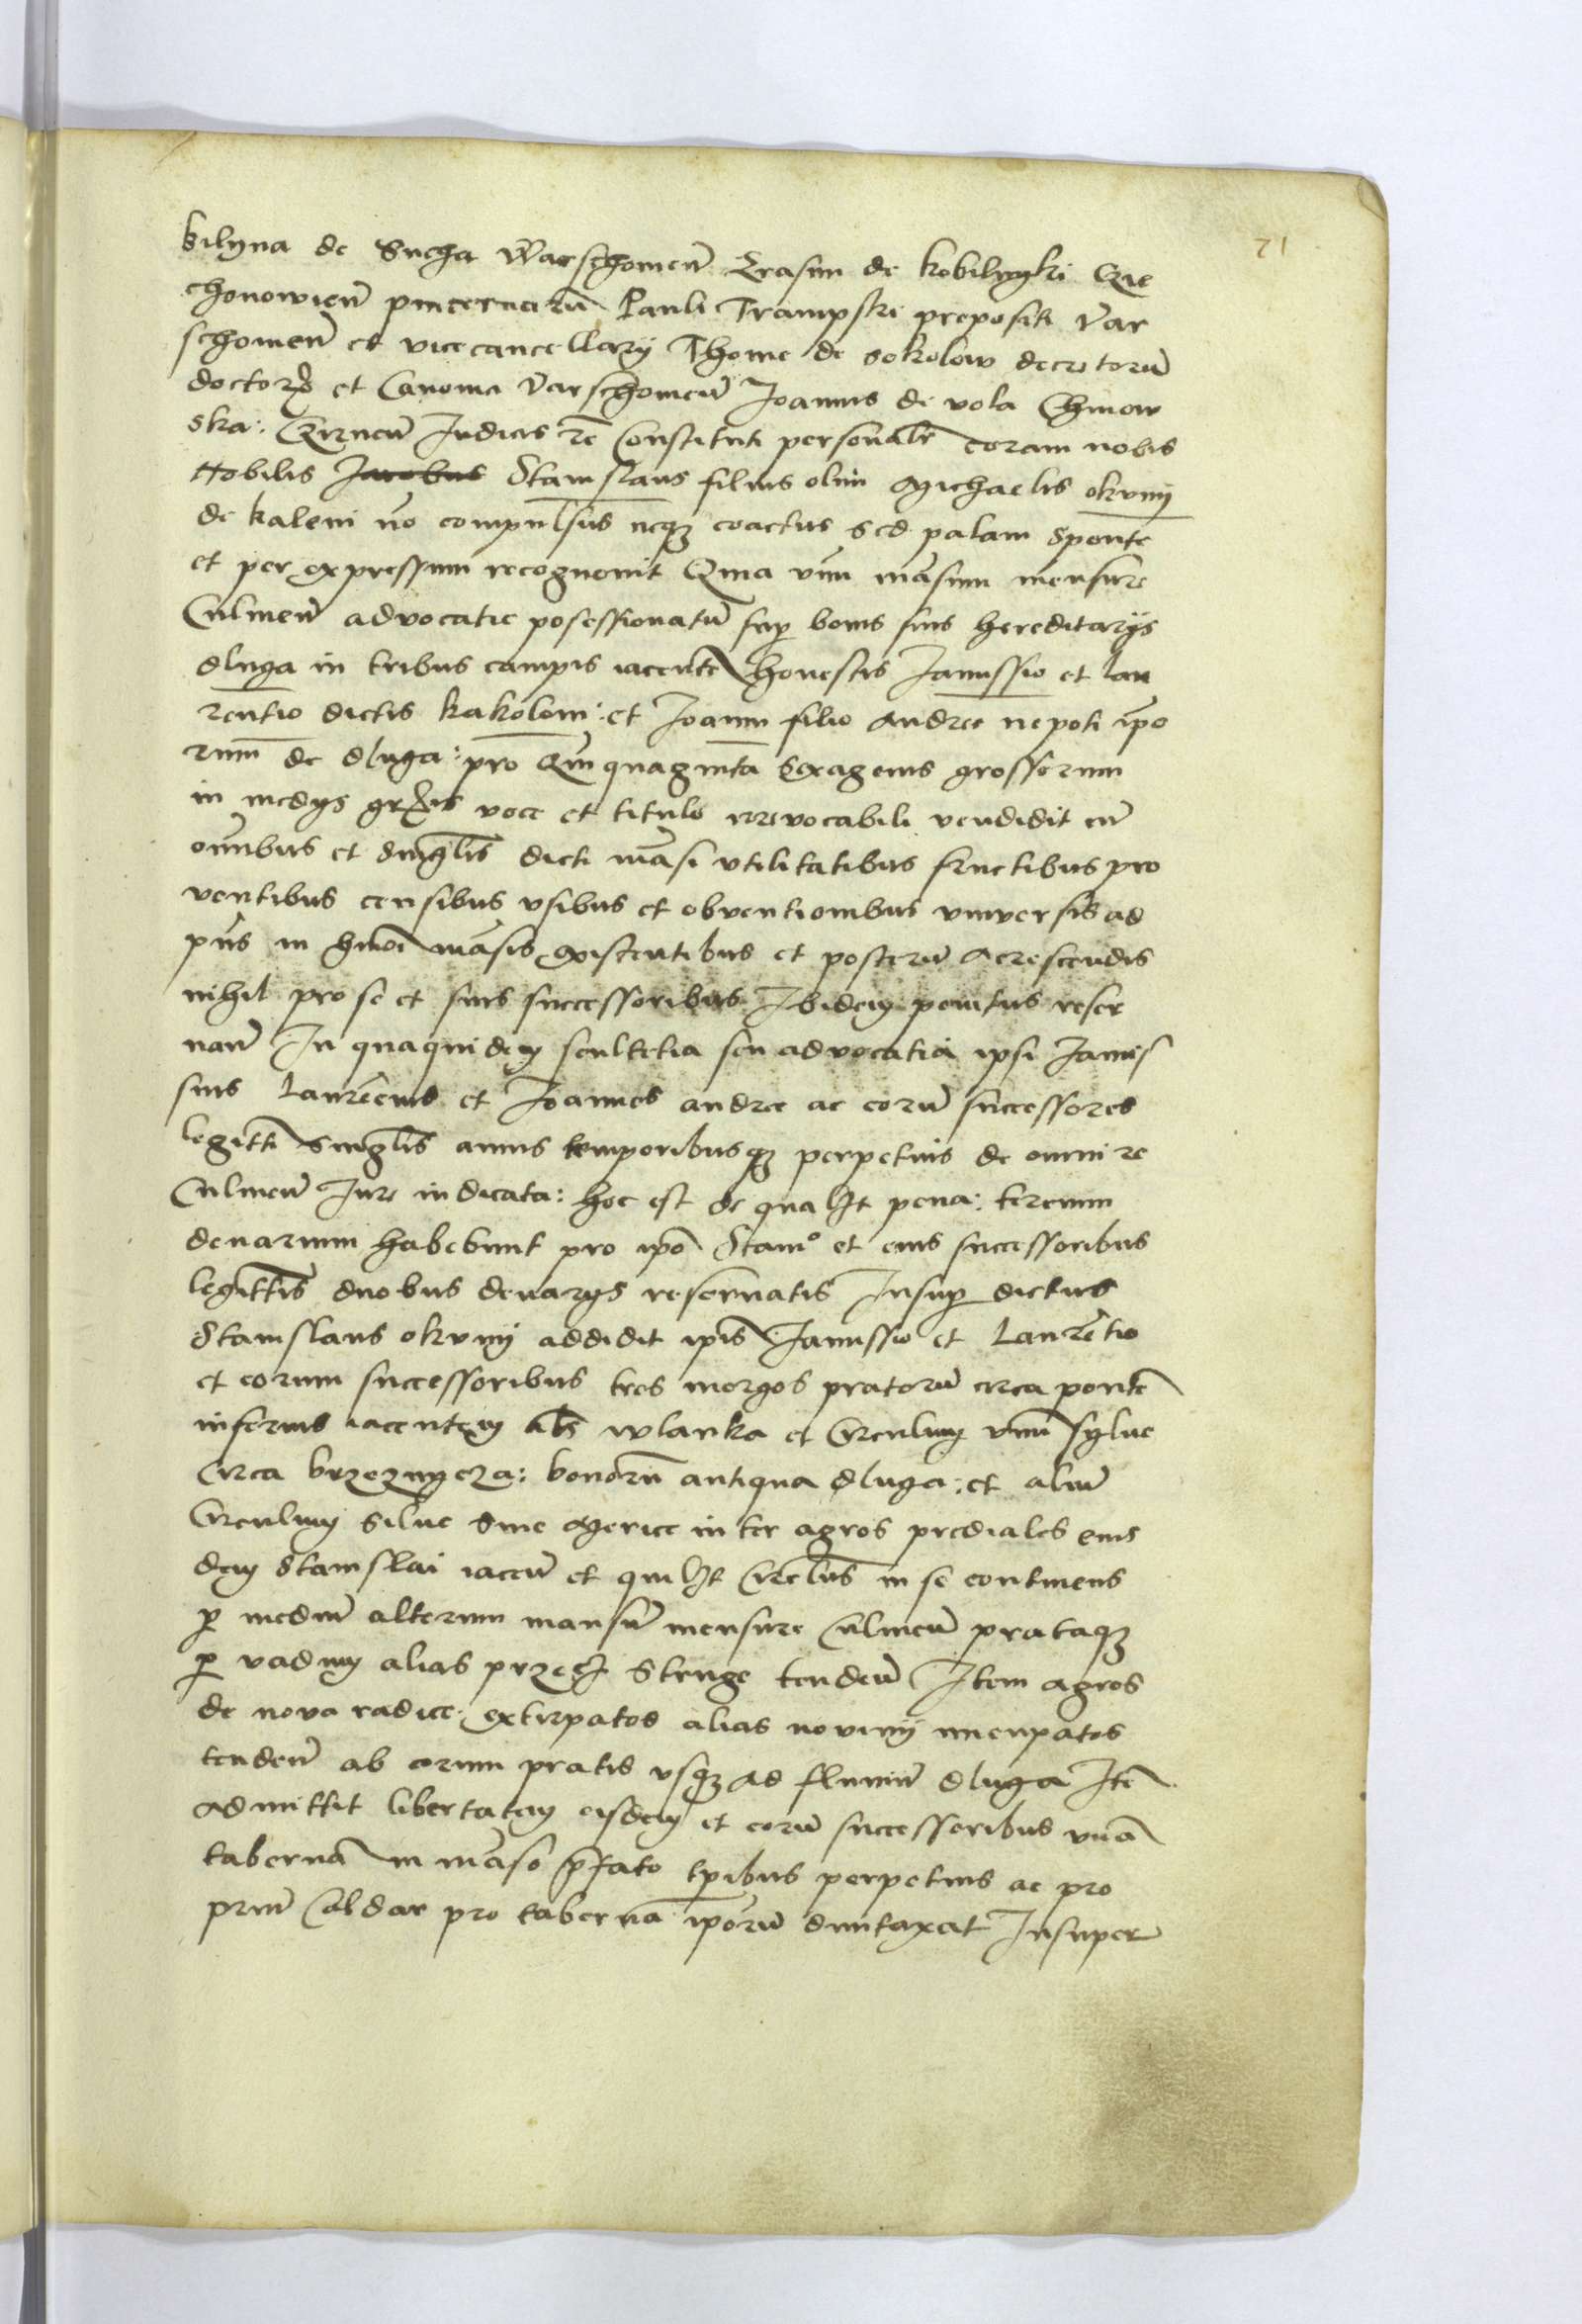 71
bilyna de Sucha Warschouien̄ Erasmi de kobilnyki Cie
chonowien̄ pincernarū Pauli Trampski prepositi Var
schouien̄ et vicecancellarij Thome de Sokolow decretorū
doctoris et Canonici Varschouien̄ Joannis de vola Chinow
ska: Cirnen̄ Judicis rē Constituti personalr̄ coram nobis
Nobilis Jacobus Stanislaus filius olim Michaelis okvnij
de kaleni nō compulsus neqз coactus sed palam sponte
et per expressum recognouit Quia vnū mansum mensure
Culmen̄ advocatie possessionatū sup bonis suis hereditarijs
dluga in tribus campis iacentē honestis Janussio et Lau
rentio dictis kakolom: et Joanni filio Andree nepoti ip̄o
rum de dluga: pro Quinquaginta Sexagenis grossorum
in medijs grossis voce et titulo irrevocabili vendidit cū
om̄ibus et singl̄is dicti mansi vtilitatibus fructibus pro
ventibus censibus vsibus et obventionibus vniversis ad
pn̄s in hmōi mansis existentibus et posterū acrescendis
nihil pro se et suis successoribus Ibidem penitus reser
uan̄ In quaquidem scultetia seu advocatia ipsi Janus
sius Laurēcius et Joannes andree ac eorū successores
legitti singl̄is annis temporibusqз perpetuis de omni re
Culmen̄ Jure iudicata: hoc est de qualꝫt pena: tercium
denarium habebunt pro ip̄o Stanº et eius successoribus
legittīs duobus denarijs reseruatis Insup dictus
Stanislaus okvnij addidit ip̄is Janussio et Laurētio
et eorum successoribus tres morgos pratorū circa pontē
inferius iacentem als wlanka et Circulum vnū syluc
Circa brzeznycza: bonorū antiqua dluga: et aliū
Circulum silue siue Merice inter agros prediales eius
dem Stanislai iacen̄ et quilꝫt Circlūs in se continens
p mediū alterum mansū mensure Culmen̄ prataqз
p vadum alias przesz Struge tenden̄ Item agros
de nova radice extirpatos alias noviny nuncupatos
tenden̄ ab eorum pratis vsqз ad fluuiū dluga Itē
admittit libertatem eisdem et eorū successoribus vnā
tabernā in manso p̄fato tp̄ibus perpetuis ac pro
priū Caldar pro taberna ip̄orū duntaxat Insuper